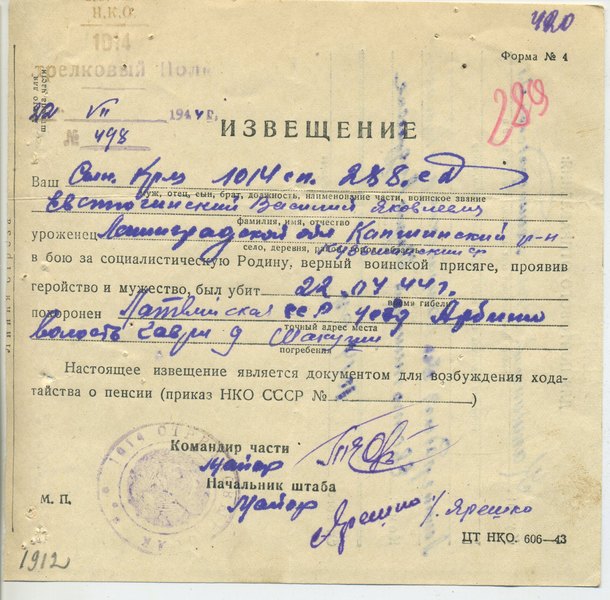 Н.К.О.
1014
трелковый Пол
420
Форма № 4
289
VII 1944 г.
№ 498
ИЗВЕЩЕНИЕ
Ваш сын. Кр-ц 1014 сп. 288. с д
муж, отец, сын, брат, должность, наименование части, воинское звание
Евстогинский Василий Яковлевич
фамилия, имя, отчество
уроженец Ленинградской обл Капшинский р-н
село, деревня,
в бою за социалистическую Родину, верный воинской присяге, проявив
геройство и мужество, был убит 22. IV 44 г.
время гибели
похоронен Латвийская ССР уезд
точный адрес места
волость Гаври д
погребения
Настоящее извещение является документом для возбуждения хода-
тайства о пенсии (приказ НКО СССР № )
Командир части
Майор
Начальник штаба
Майор
Ярешко /. Ярешко
М. П.
ЦТ НКО. 606—43
1912
Линия отреза